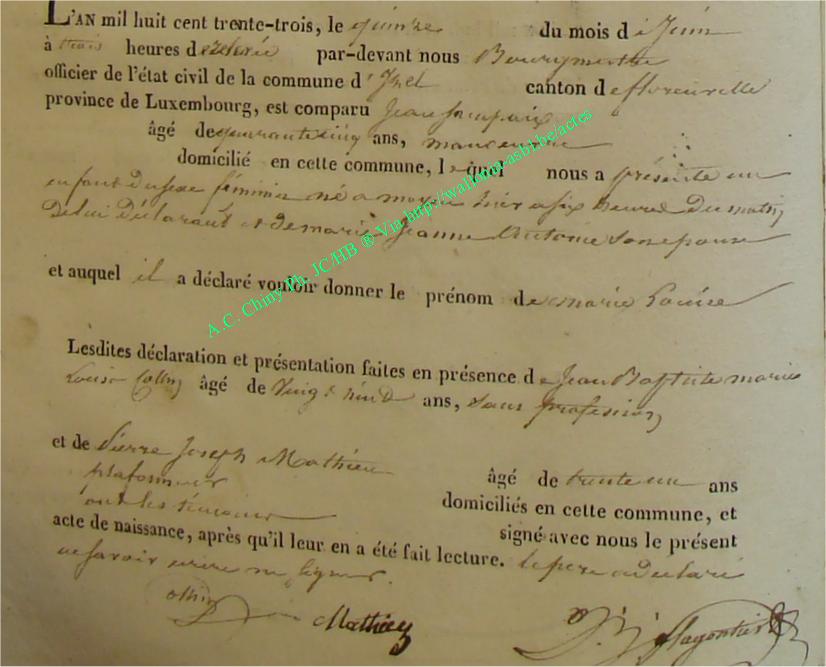 L'AN mil huit cent trente-trois, le quinze du mois de Juin
à trois heures de relevée par-devant nous Bourgmestre
officier de l'état civil de la commune d'Izel canton de florenville
province de Luxembourg, est comparu Jean
âgé de quarante cinq ans, manoeuvre
domicilié en cette commune, lequel nous a présenté un
enfant du sexe féminin né a moyen hier a six heures du matin
De lui Déclarant et de marie Jeanne Antoine son epouse
et auquel il a déclaré vouloir donner le prénom de marie Louise
Lesdites déclaration et présentation faites en présence de Jean Baptiste marie
Louis Collin âgé de Vingt ans, sans profession
et de Pierre Joseph Mathieu âgé de trente un ans
plafonneur domiciliés en cette commune, et
ont les temoins signé avec nous le présent
acte de naissance, après qu'il leur en a été fait lecture. le pere a declaré
ne savoir ecrire ni signer.
Collin Mathieu
A.C. Chiny Ph. JC/HB ® Via http://wallonia-asbl.be/actes